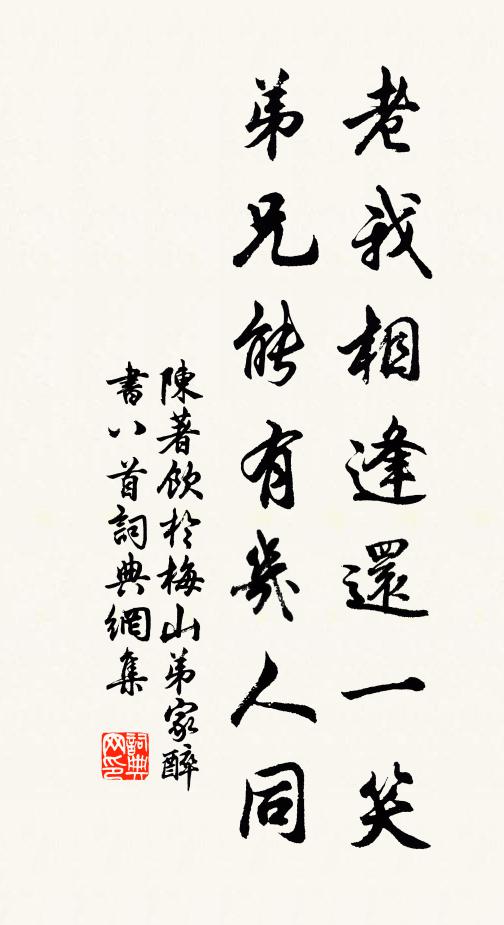 老我相逢還一笑
弟兄能有幾人同
陳著飲於梅山弟家醉
書八首詞典網集
詞典網印